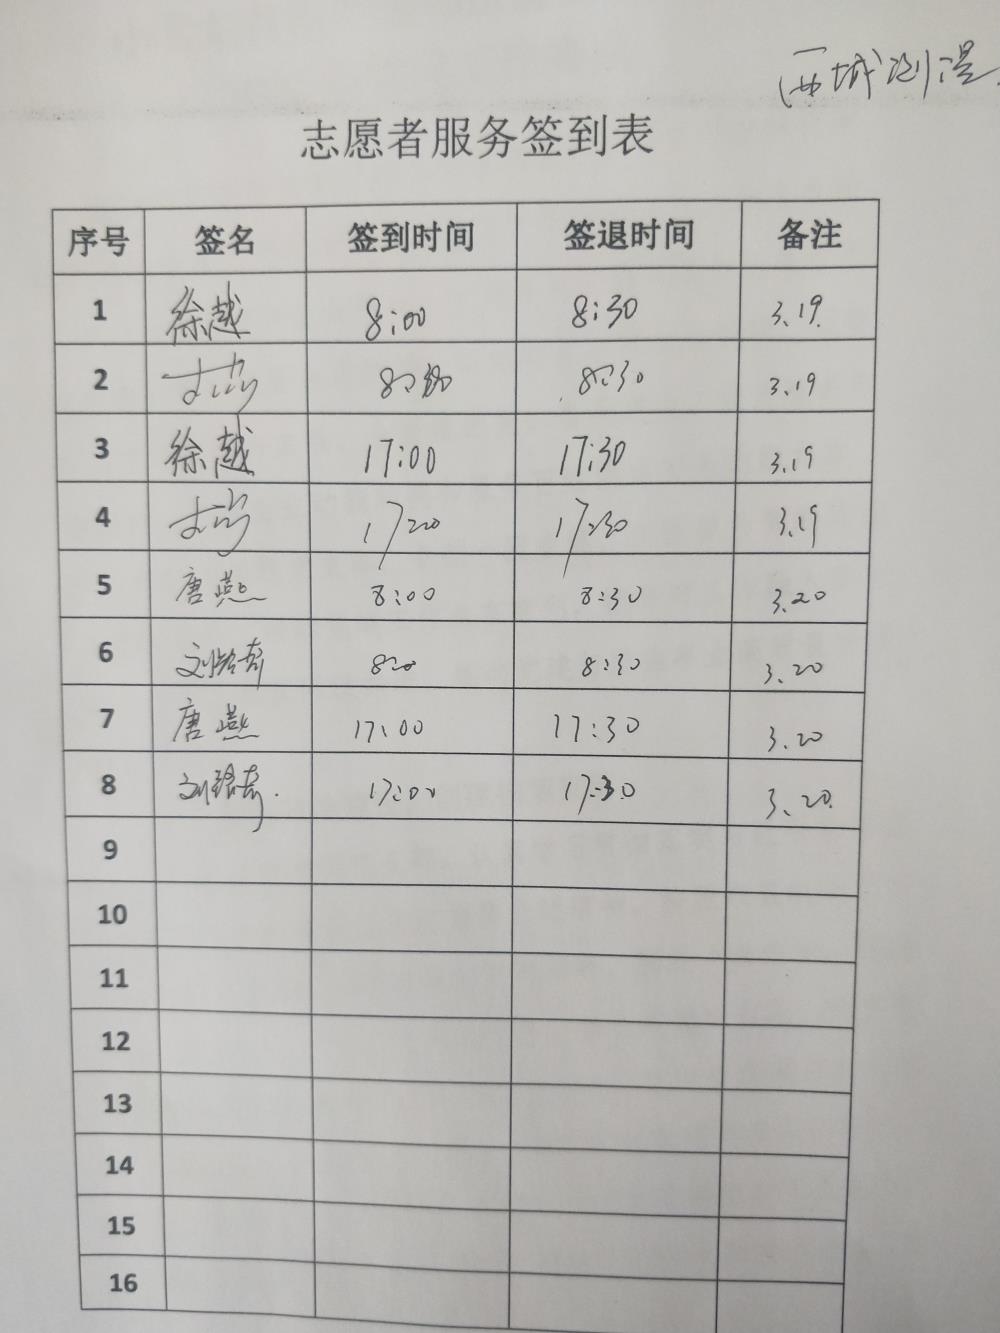 西城测温
志愿者服务签到表
序号 签名 签到时间 签退时间 备注
1 徐越 8:00 8:30 3.19
2 8:30 3.19
3 徐越 17:00 17:30 3.19
4 17:00 17:30 3.19
5 唐燕 8:00 8:30 3.20
6 8:00 8:30 3.20
7 唐燕 17:00 17:30 3.20
8 17:00 17:30 3.20
9
10
11
12
13
14
15
16